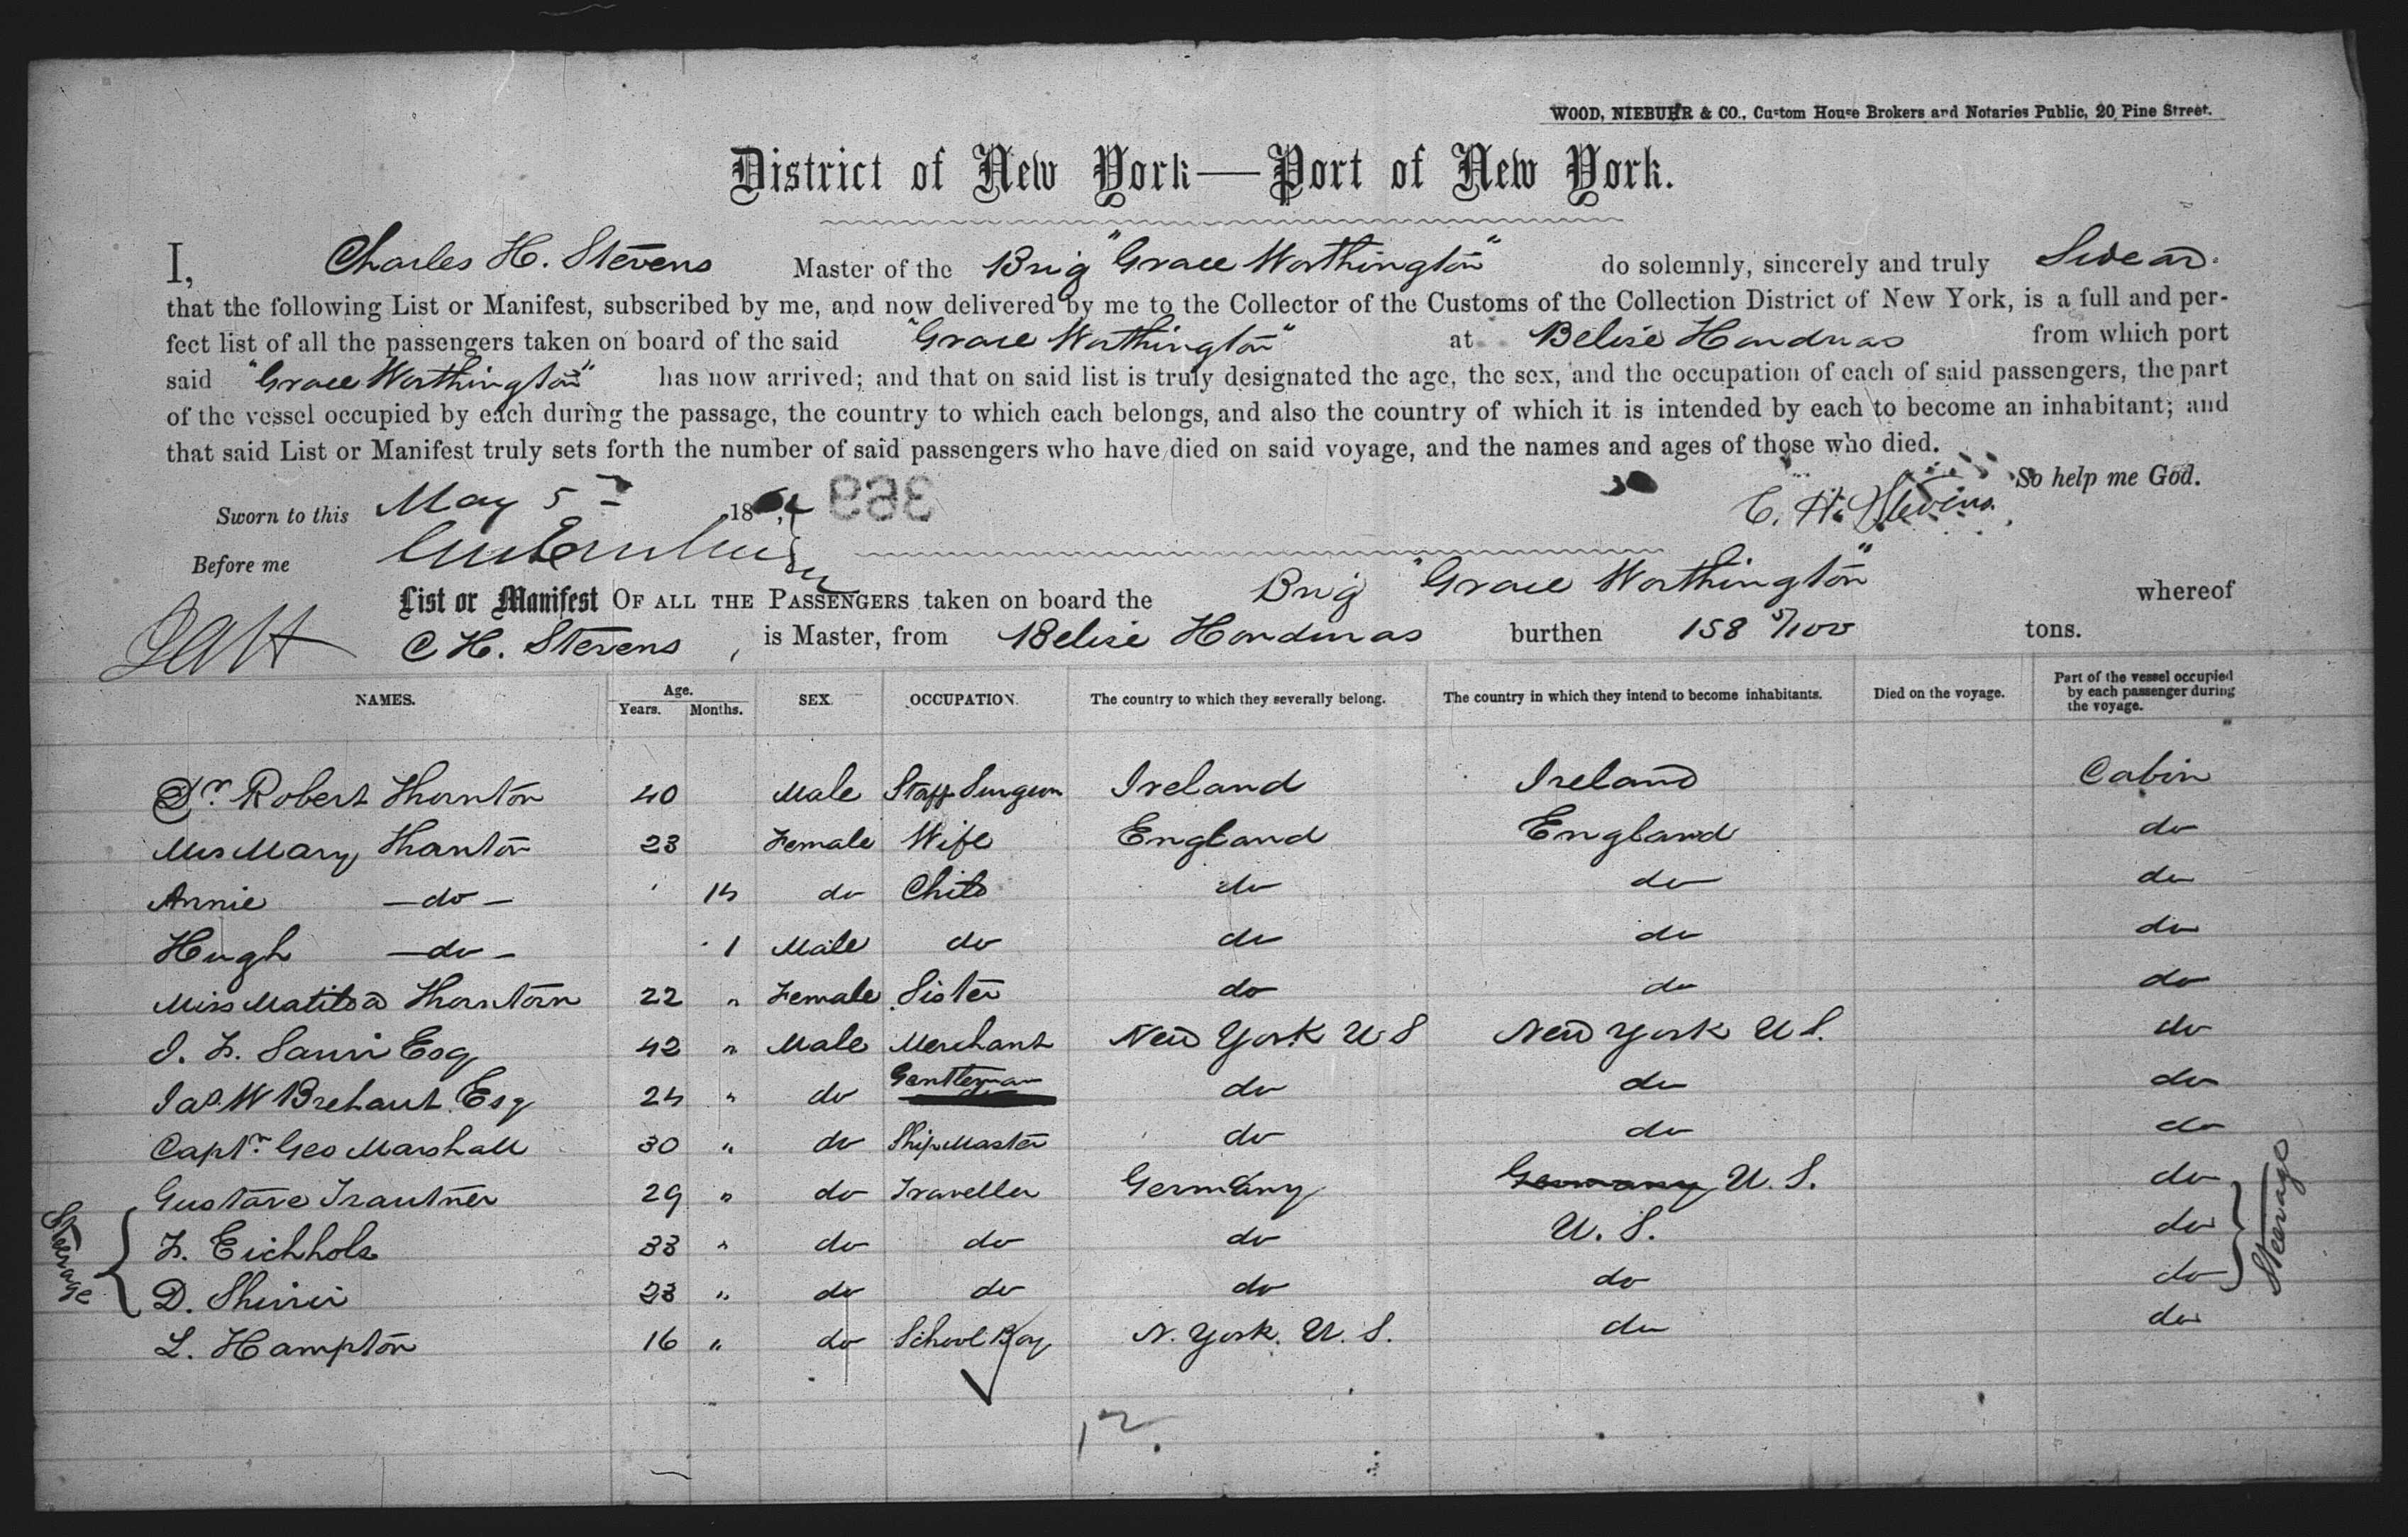 WOOD, NIEBUHR & CO., Custom House Brokers and Notaries Public, 20 Pine Street.
District of New York—Port of New York.
I, Charles H. Stevens Master of the Brig "Grace Worthington" do solemnly, sincerely and truly Swear
that the following List or Manifest, subscribed by me, and now delivered by me to the Collector of the Customs of the Collection District of New York, is a full and per-
fect list of all the passengers taken on board of the said "Grace Worthington" at Belise Honduras from which port
said "Grace Worthington" has now arrived; and that on said list is truly designated the age, the sex, and the occupation of each of said passengers, the part
of the vessel occupied by each during the passage, the country to which each belongs, and also the country of which it is intended by each to become an inhabitant; and
that said List or Manifest truly sets forth the number of said passengers who have died on said voyage, and the names and ages of those who died.
So help me God.
Sworn to this May 5th 18 C. H. Stevens
Before me
List or Manifest OF ALL THE PASSENGERS taken on board the Brig "Grace Worthington" whereof
C H. Stevens, is Master, from Belise Honduras burthen 158 5/100 tons.
NAMES. Age. Years. Months. SEX. OCCUPATION. The country to which they severally belong. The country in which they intend to become inhabitants. Died on the voyage. Part of the vessel occupied by each passenger during the voyage.
Dr. Robert Thornton 40 Male Staff Surgeon Ireland Ireland Cabin
Mrs Mary Thornton 23 Female Wife England England do
Annie —do— 14 do Child do do do
Hugh —do— 1 Male do do do do
Miss Matilda Thornton 22 " Female Sister do do do
42 " Male Merchant New York U S New York U S. do
Jas. W Brehaut Esq 24 " do Gentleman do do do
Captn. Geo Marshall 30 " do Ship Master do do do
Gustave Trautner 29 " do Traveller Germany Germany U. S. do
Steerage { F. Eichhols 33 " do do do U. S. do } Steerage
D. 23 " do do do do do
L. Hampton 16 " do School Boy N. York. U. S. do do
12.